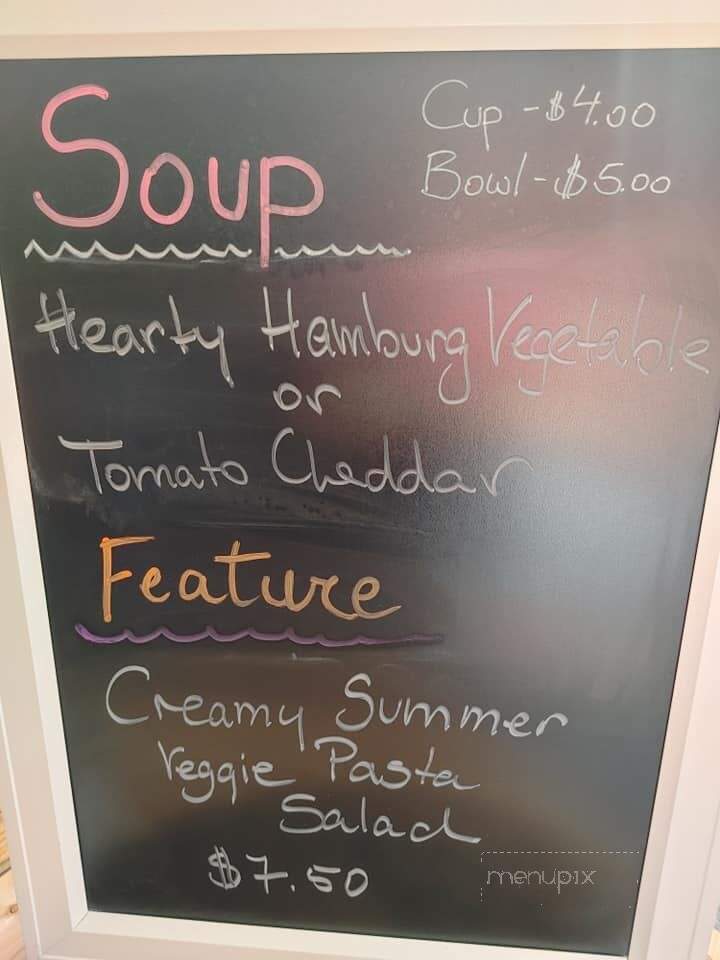 Soup
Cup - $4.00
Bowl - $5.00
Hearty Hamburg Vegetable
or
Tomato Cheddar
Feature
Creamy Summer
Veggie Pasta
Salad
$7.50
menupix